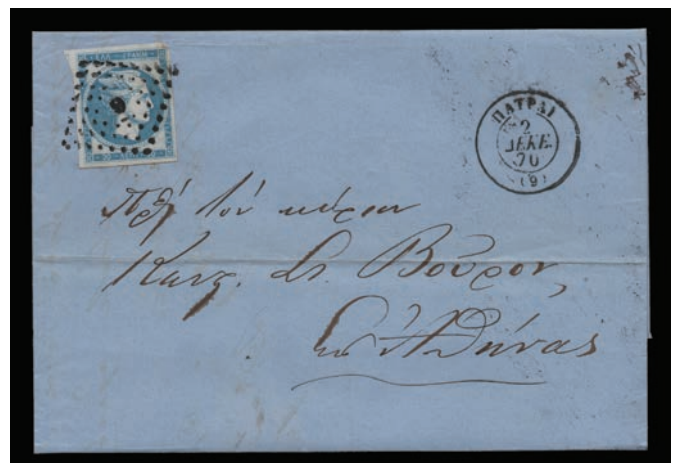 ΠΑΤΡΑΙ
2
ΔΕΚΕ.
70
(9)
τὸν κύριον
Κωνσ. Στ. Βοῦρον,
Εἰς Ἀθήνας